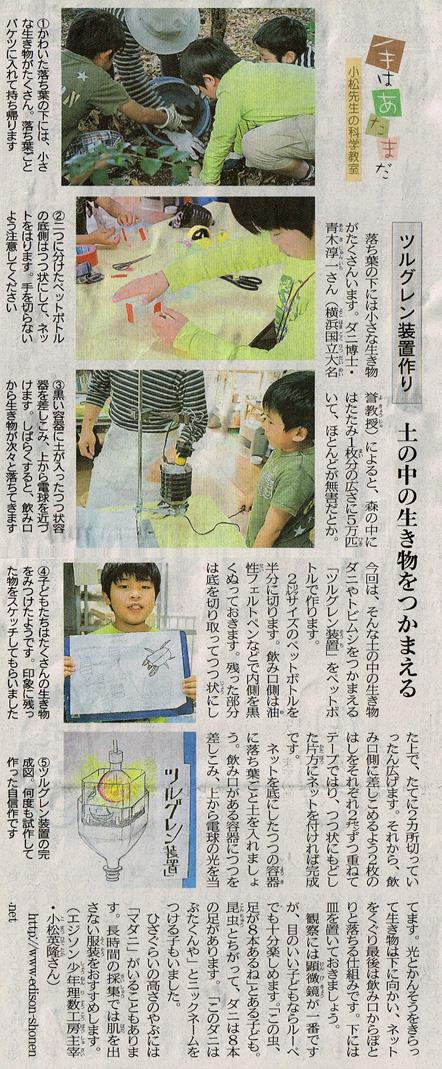 はあたまだ
小松先生の科学教室
ツルグレン装置作り
土の中の生き物をつかまえる
落ち葉の下には小さな生き物
がたくさんいます。ダニ博士・
青木淳一さん（横浜国立大名
誉教授）によると、森の中に
はたたみ1枚分の広さに5万匹
いて、ほとんどが無害だとか。
今回は、そんな土の中の生き物
ダニやトビムシをつかまえる
「ツルグレン装置」をペットボ
トルで作ります。
2㍑サイズのペットボトルを
半分に切ります。飲み口側は油
性フェルトペンなどで内側を黒
くぬっておきます。残った部分
は底を切り取ってつつ状にし
た上で、たてに2カ所切ってい
ったん広げます。それから、飲
み口側に差しこめるよう2枚の
はしをそれぞれ2㌢ずつ重ねて
テープではり、つつ状にもどし
た片方にネットを付ければ完成
です。
ネットを底にしたつつの容器
に落ち葉ごと土を入れましょ
う。飲み口がある容器につつを
差しこみ、上から電球の光を当
てます。光とかんそうをきらっ
て生き物は下に向かい、ネット
をくぐり最後は飲み口からぽと
りと落ちる仕組みです。下には
皿を置いておきましょう。
観察には顕微鏡が一番です
が、目のいい子どもならルーペ
でも十分楽しめます。「この虫、
足が8本あるね」とある子ども。
昆虫とちがって、ダニは8本
の足があります。「このダニは
ぶたくんや」とニックネームを
つける子もいました。
ひざぐらいの高さのやぶには
「マダニ」がいることもありま
す。長時間の採集では肌を出
さない服装をおすすめします。
（エジソン少年理数工房主宰
・小松英隆さん）
http://www.edison-shonen
.net
①かわいた落ち葉の下には、小さ
な生き物がたくさん。落ち葉ごと
バケツに入れて持ち帰ります
②二つに分けたペットボトル
の底側はつつ状にして、ネッ
トをはります。手を切らない
よう注意してください
③黒い容器に土が入ったつつ状容
器を差しこみ、上から電球を近づ
けます。しばらくすると、飲み口
から生き物が次々と落ちてきます
④子どもたちはたくさんの生き物
をみつけたようです。印象に残っ
た物をスケッチしてもらいました
⑤ツルグレン装置の完
成図。何度も試作して
作った自信作です
ツルグレン装置